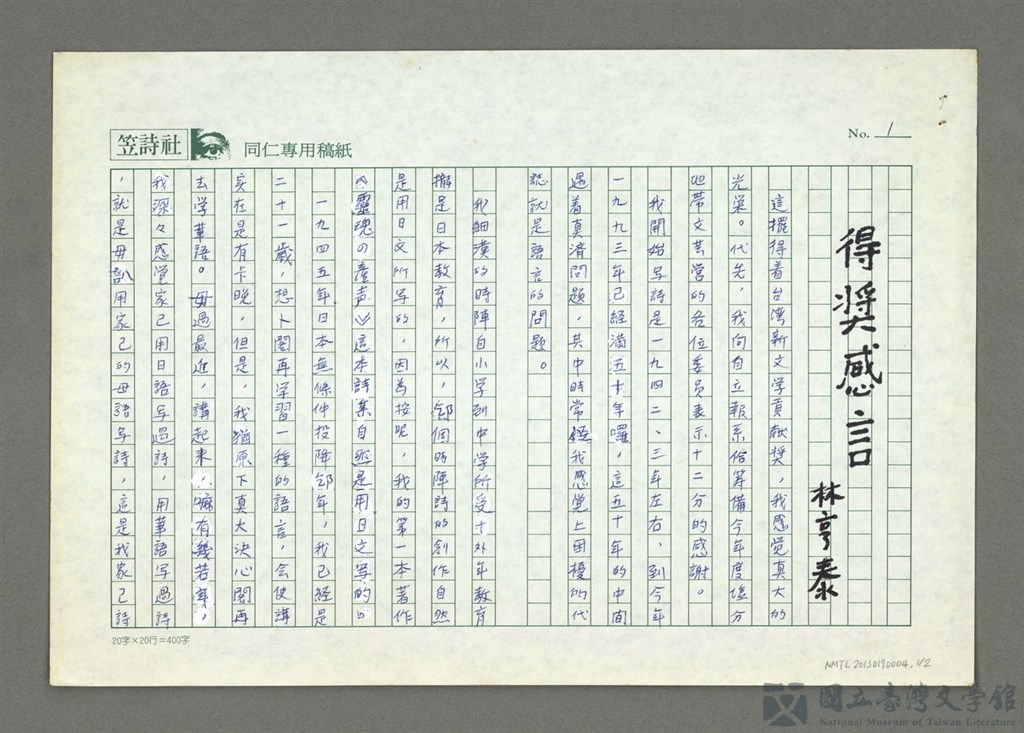 No. 1
笠詩社 同仁專用稿紙
得獎感言
林亨泰
這擺得着台湾新文学貢献奨，我感覚真大的
光栄。代先，我向自立報系佮筹備今年度塩分
地帯文芸営的各位委員表示十二分的感謝。
我開始写詩是一九四二、三年左右，到今年
一九九三年已經満五十年囉，這五十年的中間
遇着真済問題，其中時常 我感覚上困擾的代
誌就是語言的問題。
我細漢的時陣自小学到中学所受十外年教育
攏是日本教育，所以，郤個時陣詩的創作自然
是用日文所写的，因為按呢，我的第一本著作
《靈魂の産声》這本詩集自然是用日文写的。
一九四五年日本無條件投降郤年，我已經是
二十一歲，想卜閣再学習一種的語言，会使講
実在是有卡晩，但是，我猶原下真大決心閣再
去学華語。毋過最近，講起来，嘛有幾若年，
我深々感覚家己用日語写過詩，用華語写過詩
，就是毋 用家己的母語写詩，這是我家己詩
20字×20行=400字
NMTL20130190004.1/2
國立臺灣文學館
National Museum of Taiwan Literature